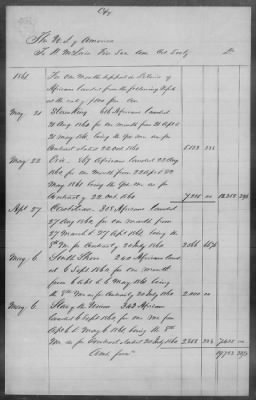 Copy
The U.S. of America
To W. McLain Fin Sec Am Col Socty Dr
1861 For one Month's support in Liberia of
Africans landed from the following
at the rate of for One
May 21 Storm King 616 Africans landed
21 Aug 1860 for one month from 22 April to
21 May 1861 being the 9th one as for
Contract dated 22 Oct 1860 5133 33⅓
May 22 Erie 867 Africans landed 22 Aug
1860 for one Month from 22 April to 22
May 1861 being the 9th Mo as for
Contract of 22 Oct 1860 7225 00 12358 33⅓
Apl 27 Castilian 308 Africans landed
27 Aug 1860, for one month from
27 March to 27 Apl 1861 being the
8th Mo for Contract of 20 July 1860 2566 66⅔
May 6 South Shore 240 Africans land
ed 6 Sept 1860 for one month
from 6 Apl to 6 May 1861 being
the 8th Mo as for Contract of 20 July 1860 2000 00
May 6 Star of the Union 343 African
landed 6 Sept 1860 for one Mo from
Apl 6 to May 6 1861 being the 8th
Mo as for Contract dated 20 July 1860 2858 33⅓ 7425 00
Amt forwd 19783 33⅓